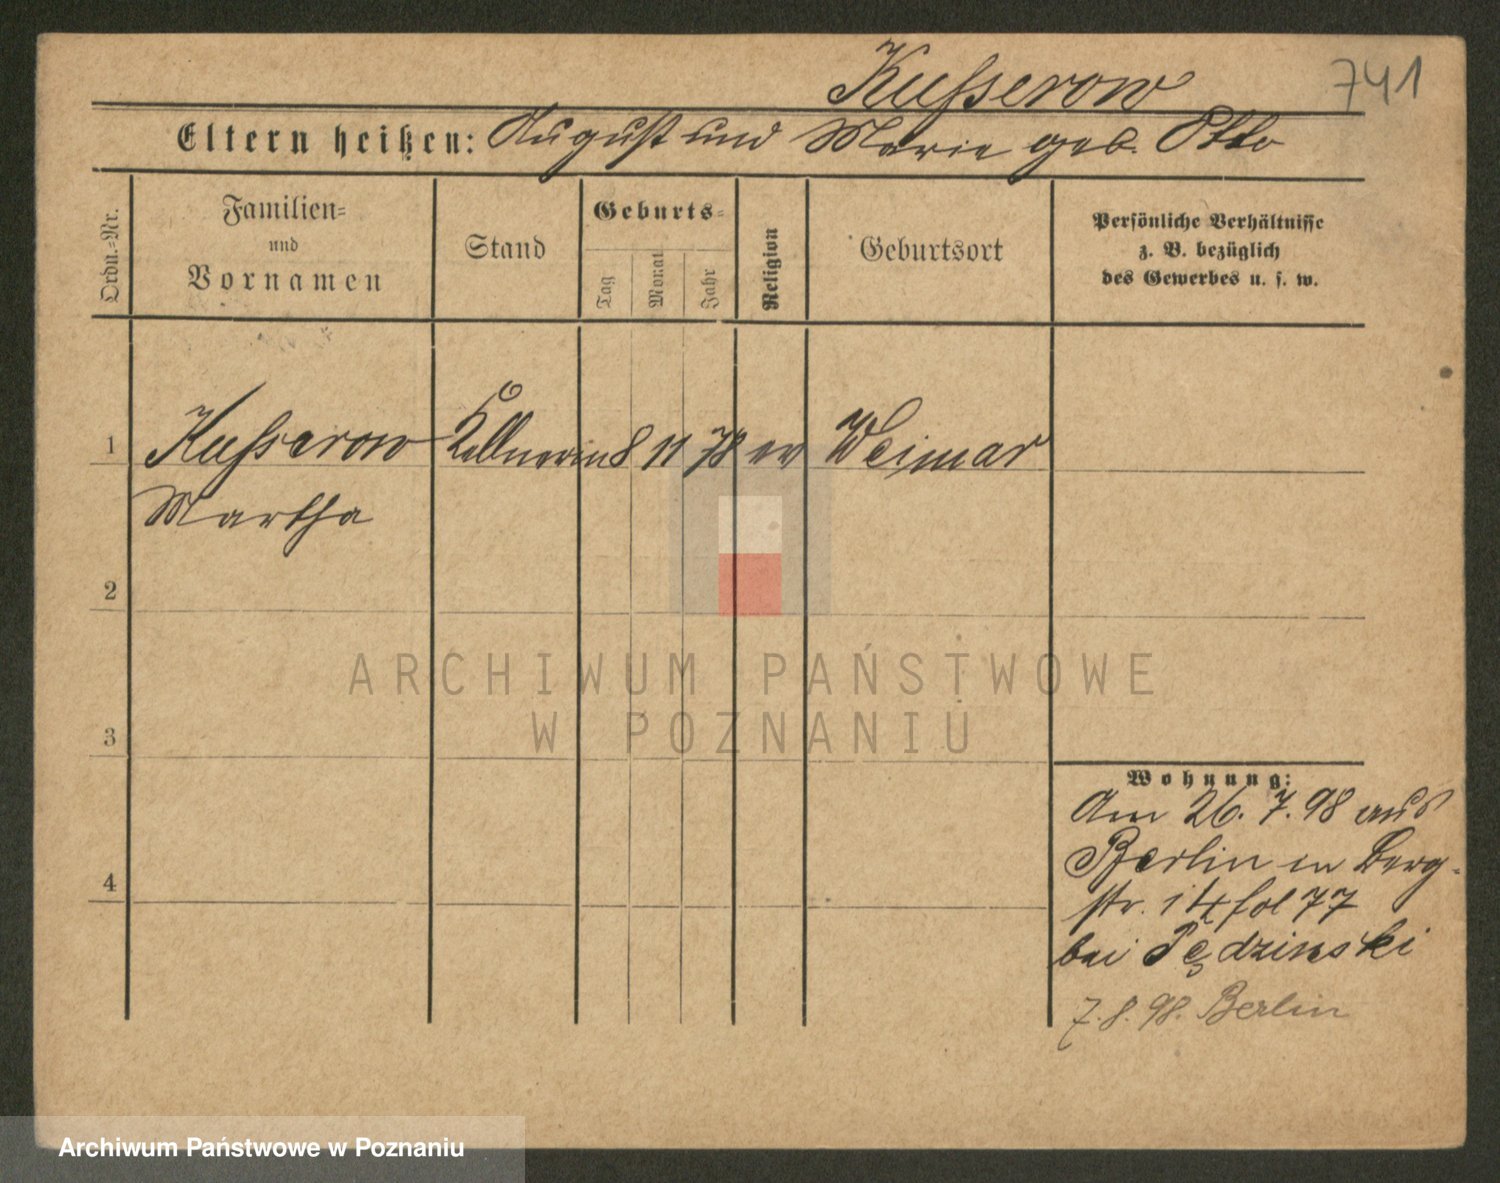 Kusserow
741
Eltern heißen: August und Marie geb. Otto
Ordn.=Nr.
Familien=
und
Vornamen
Stand
Geburts=
Tag
Monat
Jahr
Religion
Geburtsort
Persönliche Verhältnisse
z. B. bezüglich
des Gewerbes u. s. w.
1 Kusserow Kellnerin 8 11 78 ev Weimar
Martha
2
3
4
Wohnung:
Am 26. 7. 98 aus
Berlin in Berg-
str. 14 fol 77
bei Pędzinski
7. 8. 98. Berlin
ARCHIWUM PAŃSTWOWE
W POZNANIU
Archiwum Państwowe w Poznaniu